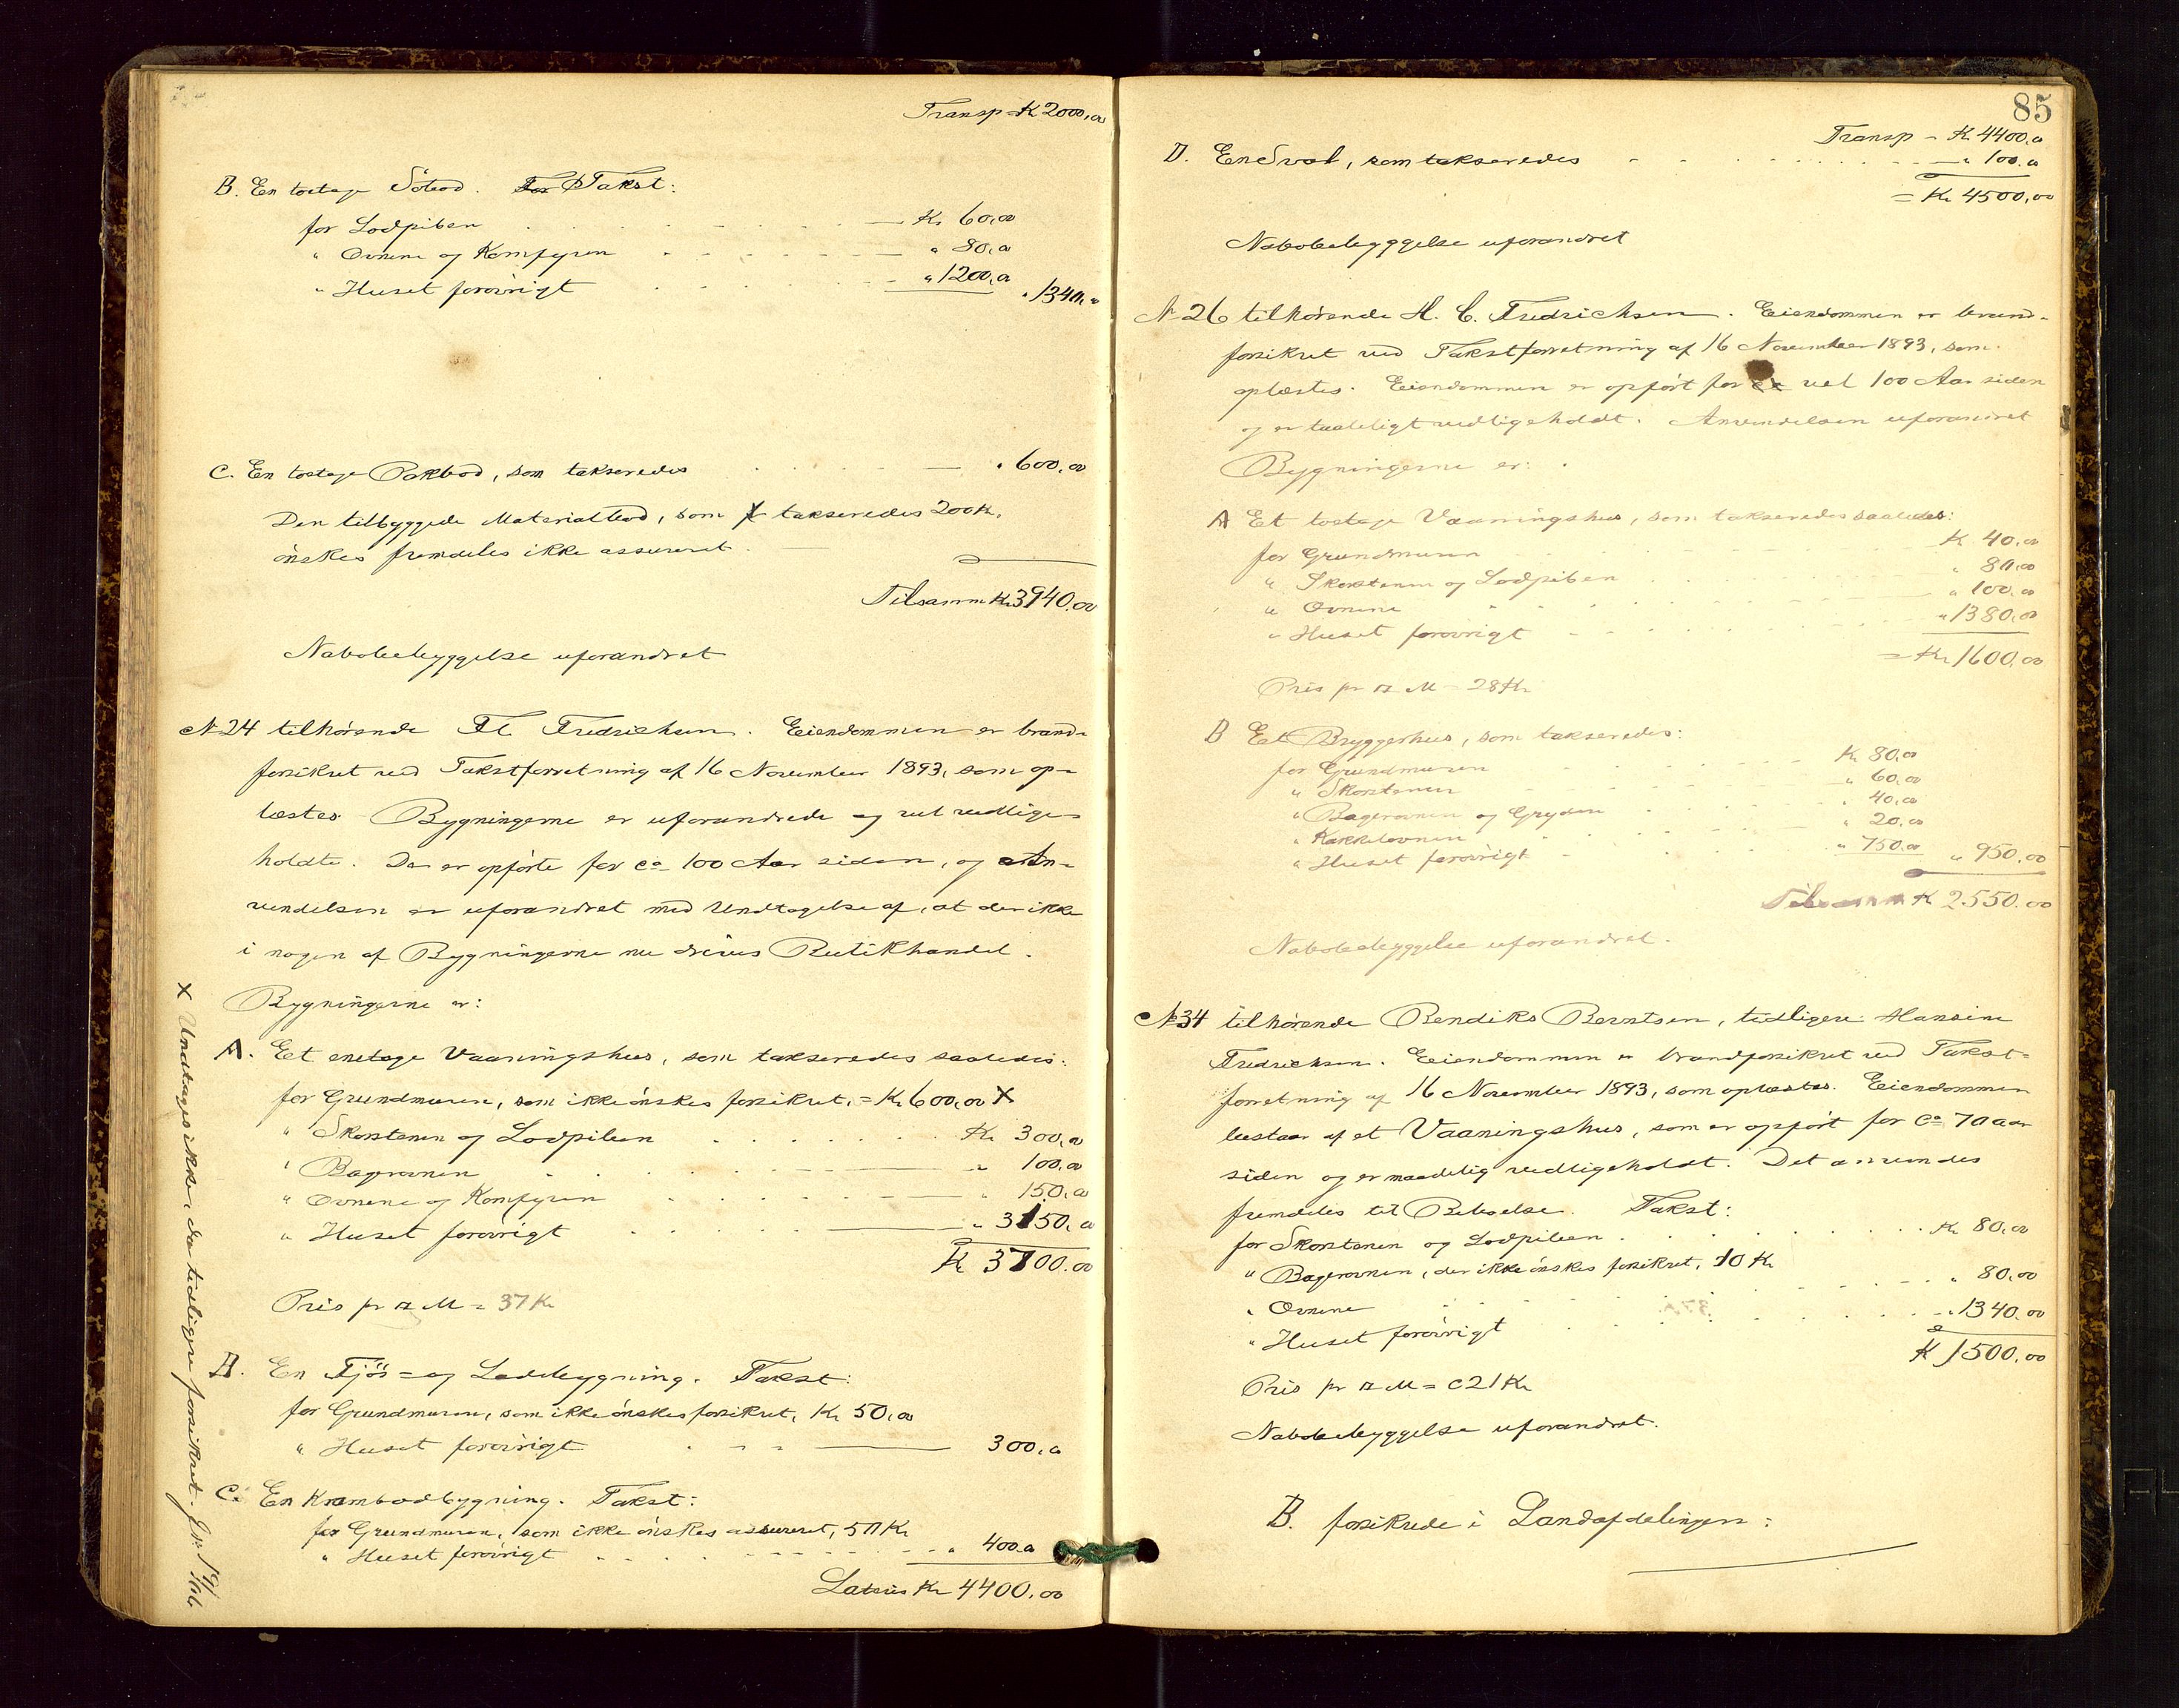 Transp Kr 2000,00
B. En toetage Söbod. Takst:
for Lodpiben - Kr 60,00
" Ovnene og Komfyren - " 80,00
" Huset forøvrigt - " 1200,00
" 1340,00
C. En toetage Pakbod, som takseredes - " 600,00
Den tilbyggede Materialbod, som takseredes 200 Kr.
ønskes fremdeles ikke assureret.
Tilsamm Kr 3940,00
Nabobebyggelse uforandret
No 24 tilhørende Fredrichsen. Eiendommen er brand-
forsikret ved Takstforretning af 16 November 1893, som op-
læstes. Bygningerne er uforandrede og vel vedlige-
holdte. De er opførte for ca 100 Aar siden, og An-
vendelsen er uforandret med Undtagelse af, at der ikke
i nogen af Bygningerne nu drives Butikhandel.
Bygningerne er:
A. Et enetage Vaaningshus, som takseredes saaledes:
for Grundmuren, som ikke ønskes forsikret, = Kr 600,00 X
" Skorstenen og Lodpiben Kr 300,00
" Bagerovnen - " 100,00
" Ovnene og Komfyren - " 150,00
" Huset forøvrigt - " 3150,00
Kr 3700,00
Pris pr □ M = 37 Kr
B. En Fjøs- og Ladebygning. Takst:
for Grundmuren, som ikke ønskes forsikret, Kr 50,00
" Huset forøvrigt - 300,00
C. En Krambodbygning. Takst:
for Grundmuren, som ikke ønskes assureret, 50 Kr
" Huset forøvrigt - " 400,00
Latus Kr 4400,00
X Undtages ikke, da tidligere forsikret.
85
Transp - Kr 4400,00
D. En Sval, som takseredes - " 100,00
= Kr 4500,00
Nabobebyggelse uforandret
No 26 tilhørende H. C. Fredrichsen. Eiendommen er brand-
forsikret ved Takstforretning af 16 November 1893, som
oplæstes. Eiendommen er opført for vel 100 Aar siden
og er taaleligt vedligeholdt. Anvendelsen uforandret
Bygningerne er:
A Et toetage Vaaningshus, som takseredes saaledes:
for Grundmuren - Kr 40,00
" Skorstenen og Lodpiben " 80,00
" Ovnene " 100,00
" Huset forøvrigt - " 1380,00
= Kr 1600,00
Pris pr □ M = 28 Kr
B Et Bryggerhus, som takseredes:
for Grundmuren - Kr 80,00
" Skorstenen - " 60,00
" Bagerovnen og Gryden " 40,00
" Kakkelovnen - " 20,00
" Huset forøvrigt - " 750,00 " 950,00
Tilsamm Kr 2550,00
Nabobebyggelse uforandret.
No 34 tilhørende Bendiks Berntsen, tidligere Hansine
Fredrichsen. Eiendommen er brandforsikret ved Takst-
forretning af 16 November 1893, som oplæstes. Eiendommen
bestaar af et Vaaningshus, som er opført for ca 70 aar
siden og er maadelig vedligeholdt. Det anvendes
fremdeles til Beboelse. Takst:
for Skorstenen og Lodpiben Kr 80,00
" Bagerovnen, der ikke ønskes forsikret, 10 Kr
" Ovnene - " 80,00
" Huset forøvrigt - " 1340,00
Kr 1500,00
Pris pr □ M = c 21 Kr
Nabobebyggelse uforandret.
B. forsikrede i Landafdelingen: